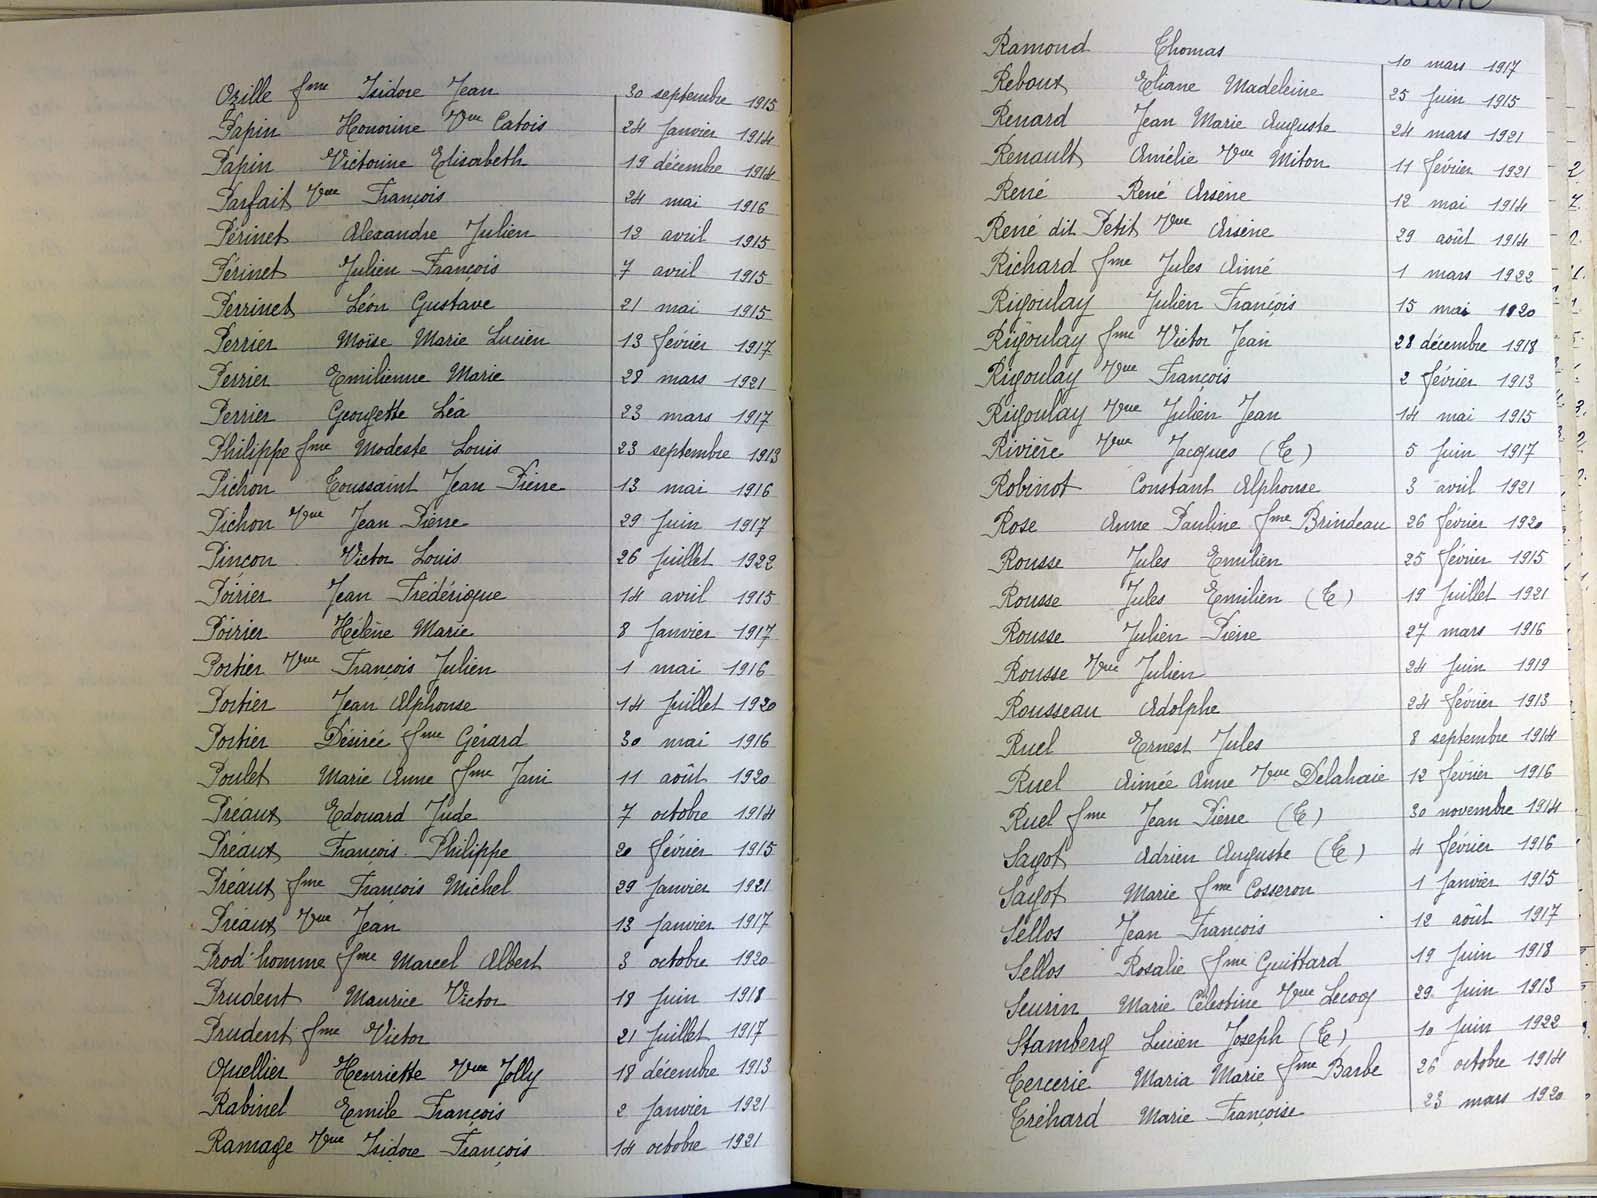 Ozille fme Isidore Jean 30 septembre 1915
Papin Honorine Vve Catois 24 Janvier 1914
Papin Victorine Elisabeth 19 décembre 1914
Parfait Vve François 24 mai 1916
Périnet Alexandre Julien 12 avril 1915
Périnet Julien François 7 avril 1915
Perrinet Léon Gustave 21 mai 1915
Perrier Moïse Marie Lucien 13 février 1917
Perrier Emilienne Marie 28 mars 1921
Perrier Georgette Léa 23 mars 1917
Philippe fme Modeste Louis 23 septembre 1913
Pichon Toussaint Jean Pierre 13 mai 1916
Pichon Vve Jean Pierre 29 Juin 1917
Pinçon Victor Louis 26 Juillet 1922
Poirier Jean Frédérique 14 avril 1915
Poirier Hélène Marie 8 Janvier 1917
Portier Vve François Julien 1 mai 1916
Portier Jean Alphonse 14 Juillet 1920
Portier Désirée fme Gérard 30 mai 1916
Poulet Marie Anne fme Jani 11 août 1920
Préaux Edouard Jude 7 octobre 1914
Préaux François Philippe 20 février 1915
Préaux fme François Michel 29 Janvier 1921
Préaux Vve Jean 13 Janvier 1917
Prod'homme fme Marcel Albert 3 octobre 1920
Prudent Maurice Victor 18 Juin 1918
Prudent fme Victor 21 Juillet 1917
Quellier Henriette Vve Jolly 18 décembre 1913
Rabinel Emile François 2 Janvier 1921
Ramage Vve Isidore François 14 octobre 1921
Ramond Thomas 10 mars 1917
Reboux Eliane Madeleine 25 Juin 1915
Renard Jean Marie Auguste 24 mars 1921
Renault Amélie Vve Miton 11 février 1921
René René Arsène 12 mai 1914
René dit Petit Vve Arsène 29 août 1914
Richard fme Jules Aimé 1 mars 1922
Rigoulay Julien François 15 mai 1920
Rigoulay fme Victor Jean 28 décembre 1918
Rigoulay Vve François 2 février 1913
Rigoulay Vve Julien Jean 14 mai 1915
Rivière Vve Jacques (T) 5 Juin 1917
Robinot Constant Alphonse 3 avril 1921
Rose Anne Pauline fme Brindeau 26 février 1920
Rousse Jules Emilien 25 février 1915
Rousse Jules Emilien (T) 19 Juillet 1921
Rousse Julien Pierre 27 mars 1916
Rousse Vve Julien 24 Juin 1919
Rousseau Adolphe 24 février 1913
Ruel Ernest Jules 8 septembre 1914
Ruel Aimée Anne Vve Delahaie 12 février 1916
Ruel fme Jean Pierre (T) 30 novembre 1914
Sagot Adrien Auguste (T) 4 février 1916
Sagot Marie fme Cosseron 1 Janvier 1915
Sellos Jean François 12 août 1917
Sellos Rosalie fme Guittard 19 Juin 1918
Seurin Marie Célestine Vve Lecoq 29 Juin 1913
Stamberg Lucien Joseph (T) 10 Juin 1922
Tercerie Maria Marie fme Barbe 26 octobre 1914
Tréhard Marie Françoise 23 mars 1920